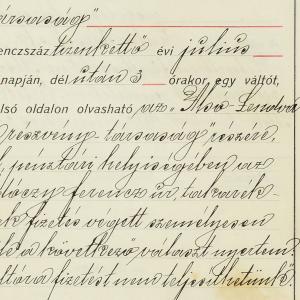 ársaság"
enczszáz tizenkettő évi július
napján, dél után 3 órakor egy váltót,
lsó oldalon olvasható az "Alsó-Lendva
részvény-társaság" részére,
pénztári helyiségében az
ferencz úr, takarék-
ek fizetés végett személyesen
le a következő választ nyertem:
ltóra fizetést nem teljesíthetünk".